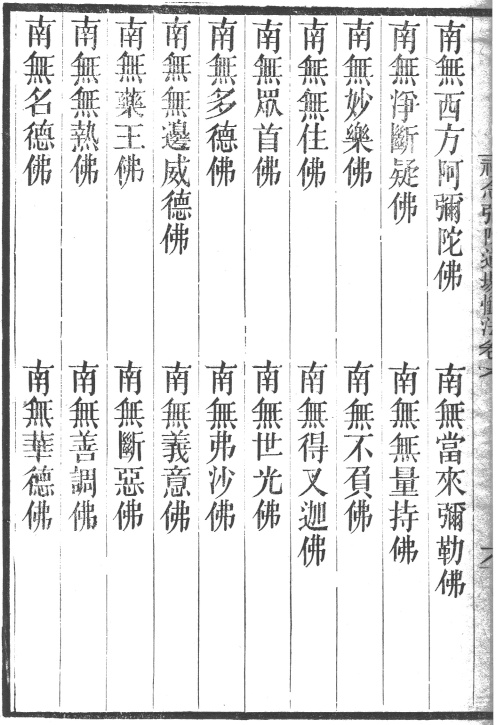 南無西方阿彌陀佛　南無當來彌勒佛
南無淨斷疑佛　南無無量持佛
南無妙樂佛　南無不負佛
南無無住佛　南無得叉迦佛
南無眾首佛　南無世光佛
南無多德佛　南無弗沙佛
南無無邊威德佛　南無義意佛
南無藥王佛　南無斷惡佛
南無無熱佛　南無善調佛
南無名德佛　南無華德佛